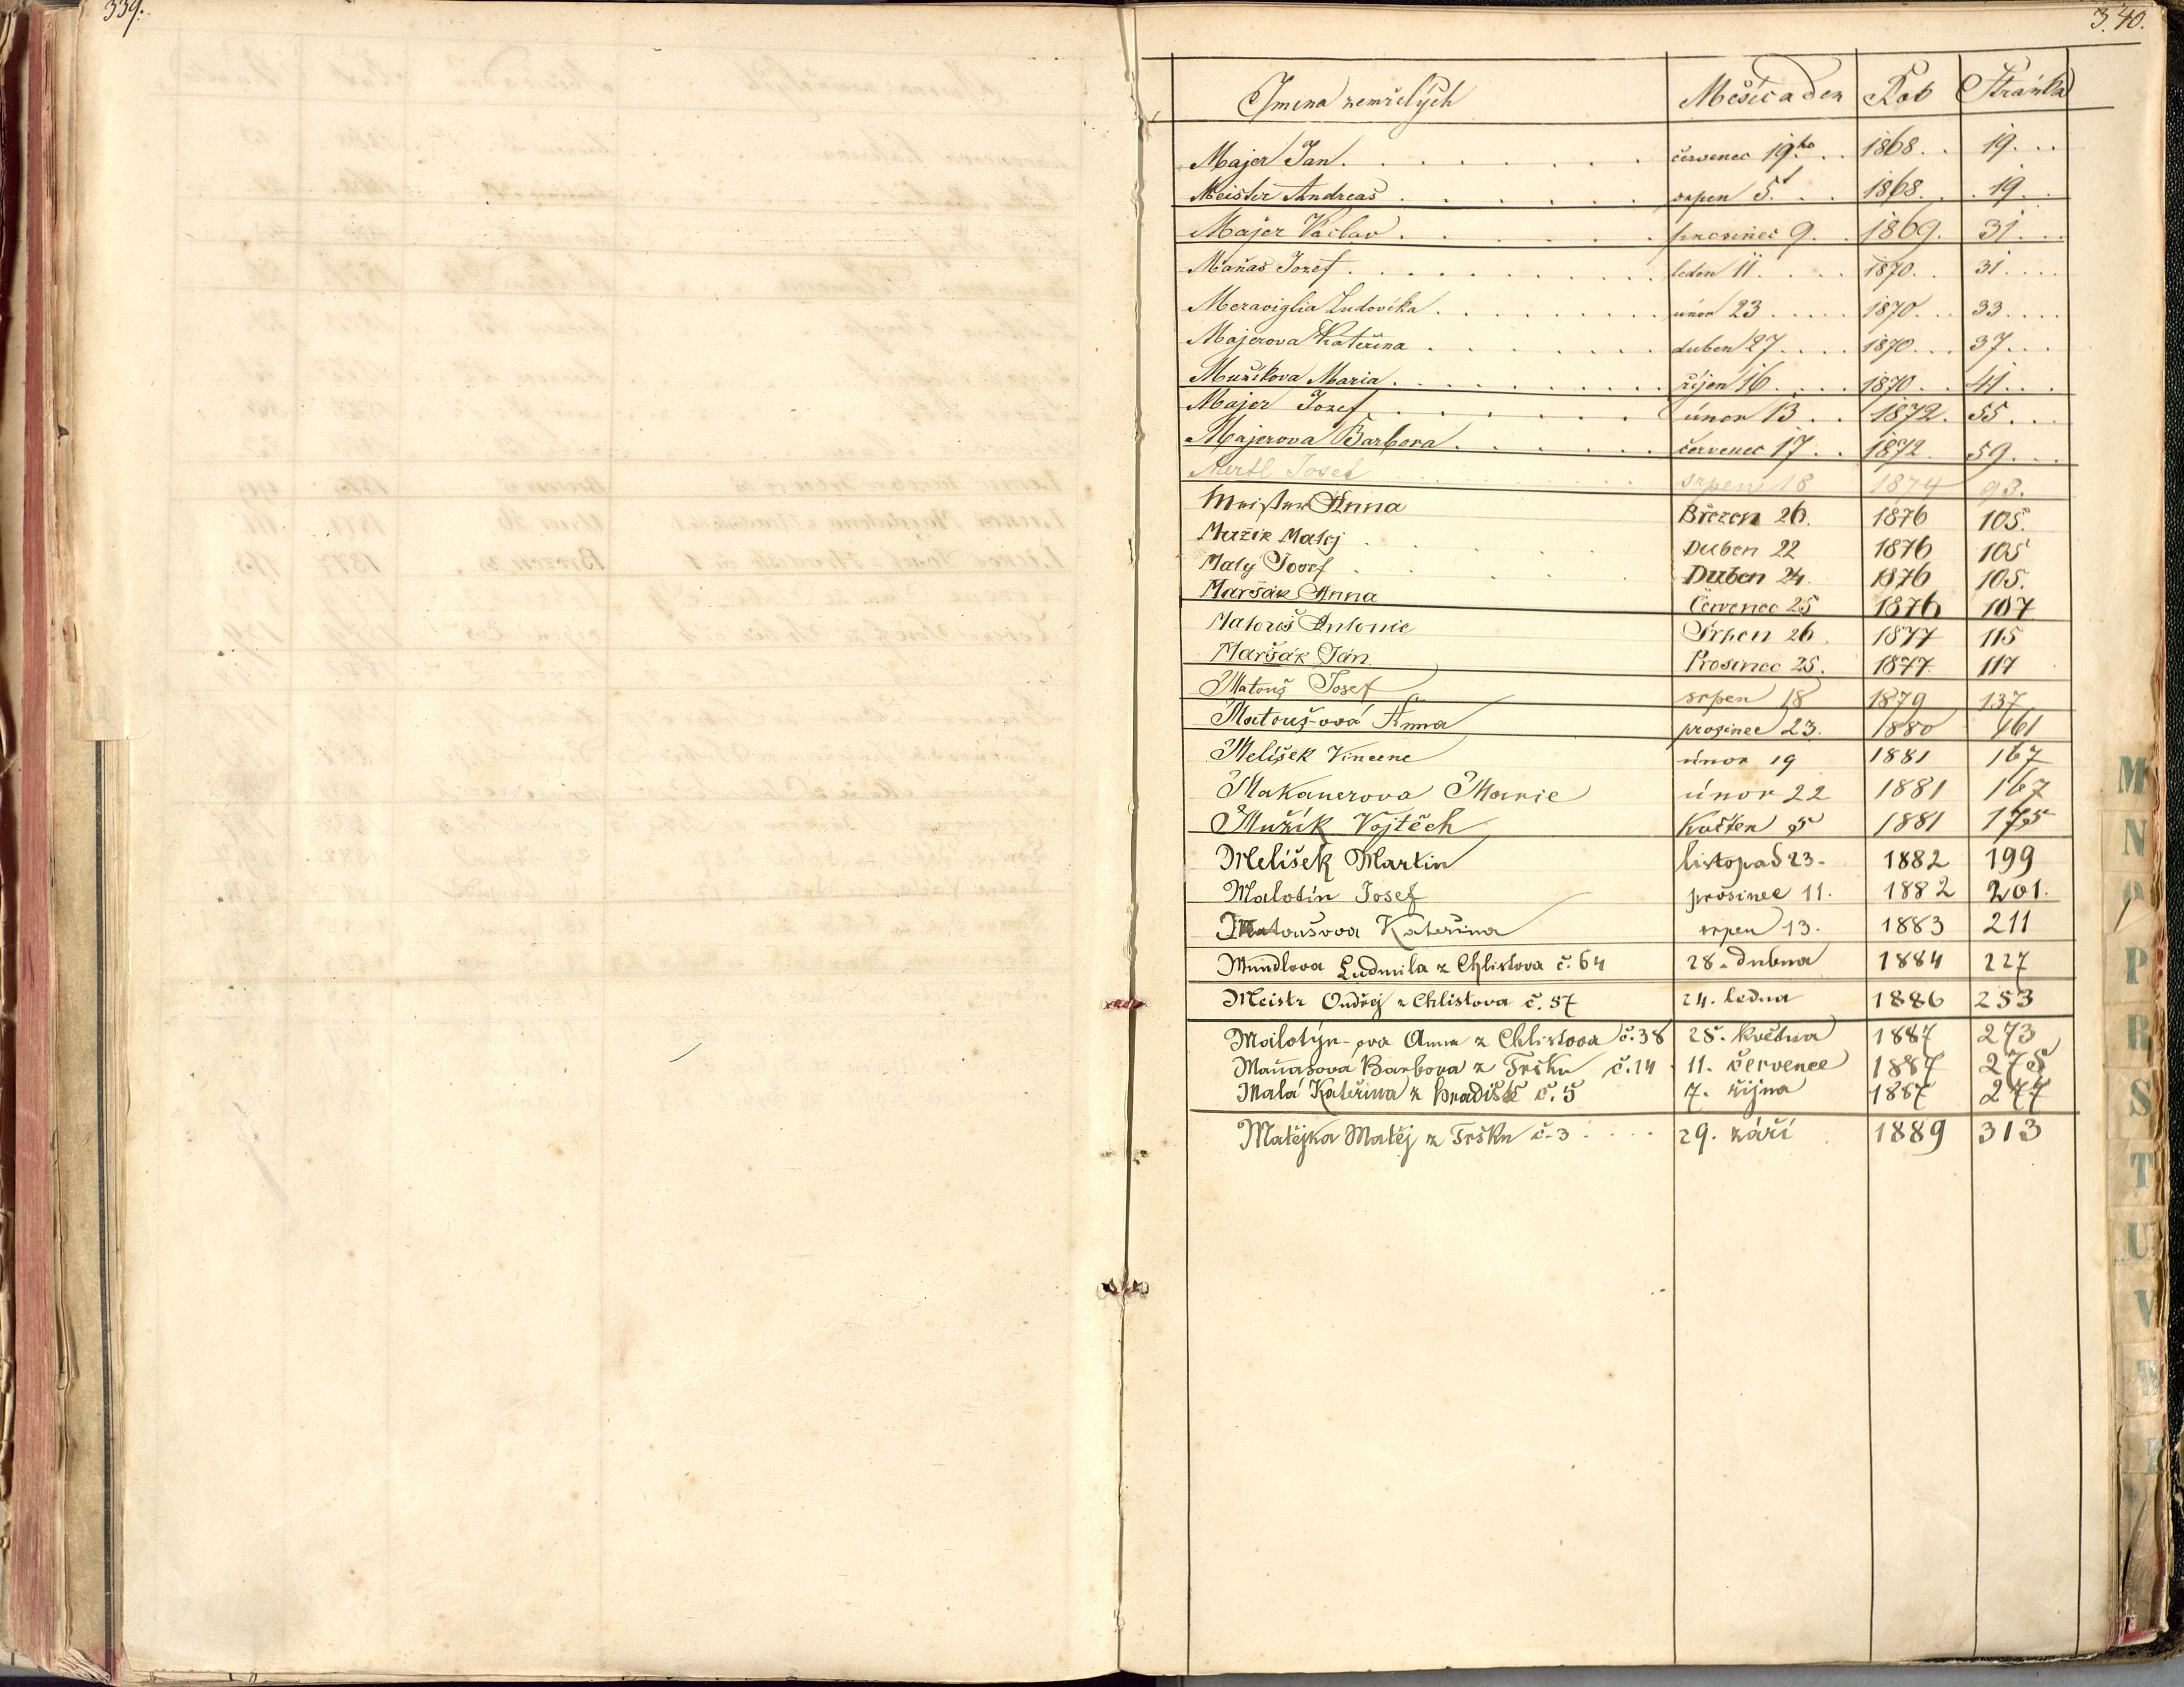 339.
340.
Jména zemřelých Měsíc a den Rok Stránka
Majer Jan. červenec 19ho 1868. 19.
Meister Andreas srpen 5. 1868. 19.
Majer Vaclav. prosinec 9. 1869. 31.
Maňas Josef. leden 11. 1870. 31.
Meraviglia Ludovika. únor 23 1870. 33.
Majerova Kateřina duben 27. 1870. 37.
Mužikova Maria. říjen 16. 1870. 41.
Majer Josef. únor 13. 1872. 55.
Majerova Barbora. červenec 17. 1872. 59.
Mertl Josef srpen 18 1874 93.
Meister Anna Březen 26. 1876 105.
Mužik Matej Duben 22 1876 105
Malý Josef Duben 24. 1876 105.
Maršák Anna Červenec 25 1876 107
Matouš Antonie Srpen 26. 1877 115
Maršák Ján Prosinec 25. 1877. 117
Matouš Josef srpen 18 1879 137
Matouš-ová Anna prosinec 23. 1880 161
Melíšek Vincenc únor 19 1881 167
Makanerova Marie únor 22 1881 167
Mužík Vojtěch Květen 5 1881 175
Melíšek Martin listopad 23. 1882 199
Malotín Josef prosinec 11. 1882 201.
Matoušova Kateřina srpen 13. 1883 211
Mundlova Ludmila z Chlistova č. 64 28. dubna 1884 227
Meistr Ondřej z Chlistova č. 57 24. ledna 1886 253
Malotýn-ova Anna z Chlistova č. 38 25. května 1887 273
Maňasova Barbora z Fršku č. 14 11. července 1887 275
Malá Kateřina z Hradiště č. 5 7. října 1887 277
Matějka Matěj z Fršku č. 3 29. září 1889 313
M
N
O
P
R
S
T
U
V
W
Z